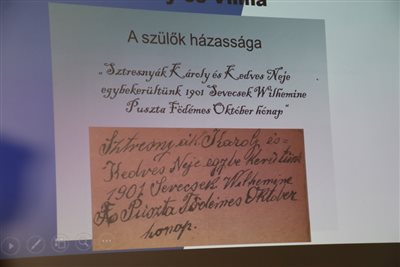 és Vilma
A szülők házassága
„Sztresnyák Károly és Kedves Neje
egybekerültünk 1901 Sevecsek Wilhemine
Puszta Födémes Október hónap"
Sztresnyák Karoly és-
Kedves Neje egybe kerültünk
1901 Sevecsek Wilhemine
Puszta Födémes Oktober
honap.